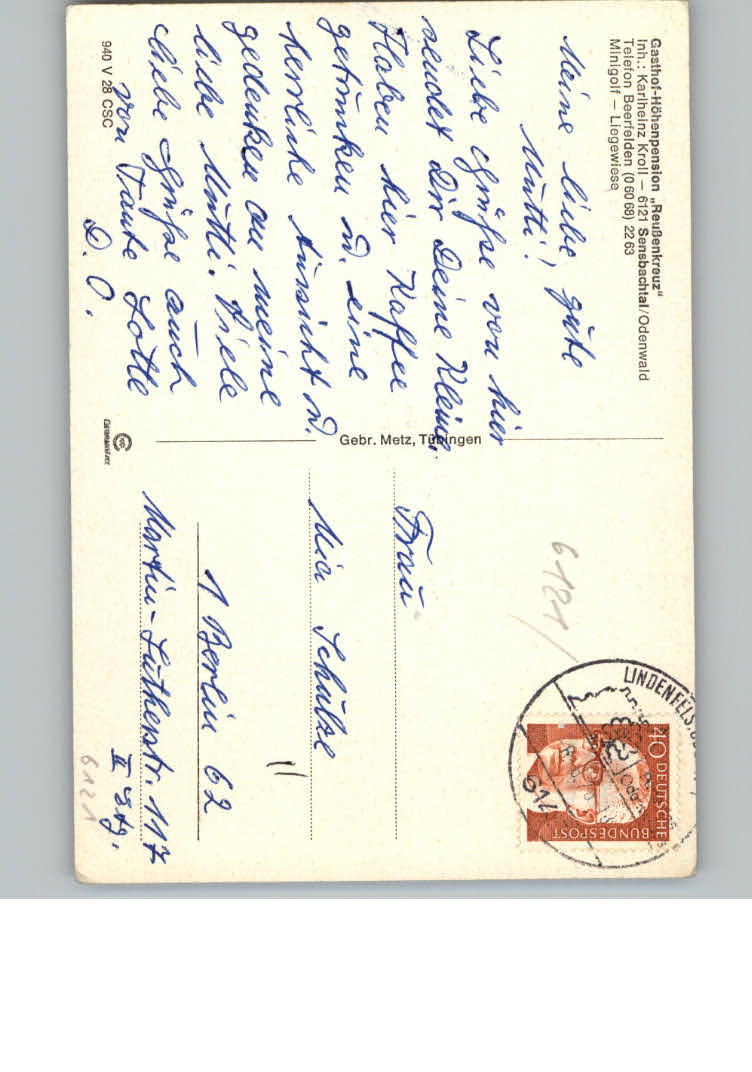 Gasthof-Höhenpension „Reußenkreuz“
Inh.: Karlheinz Kroll – 6121 Sensbachtal/Odenwald
Telefon Beerfelden (0 60 68) 22 63
Minigolf – Liegewiese
Meine liebe, gute
Mutti!
Liebe Grüße von hier
sendet Dir Deine Kleine.
Haben hier Kaffee
getrunken u. eine
herrliche Aussicht u.
gedenken an meine
liebe Mutti. Viele
liebe Grüße auch
von Tante Lotte
D. O.
940 V 28 CSC
Gebr. Metz, Tübingen
6121/
LINDENFELS
614
40 DEUTSCHE
BUNDESPOST
Frau
Mia Schulze
1 Berlin 62
Martin-Lutherstr. 117
II Stg.
6121